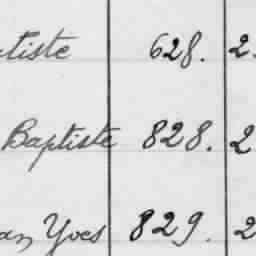 tiste 628. 2.
Baptiste 828. 2
an Yves 829. 2